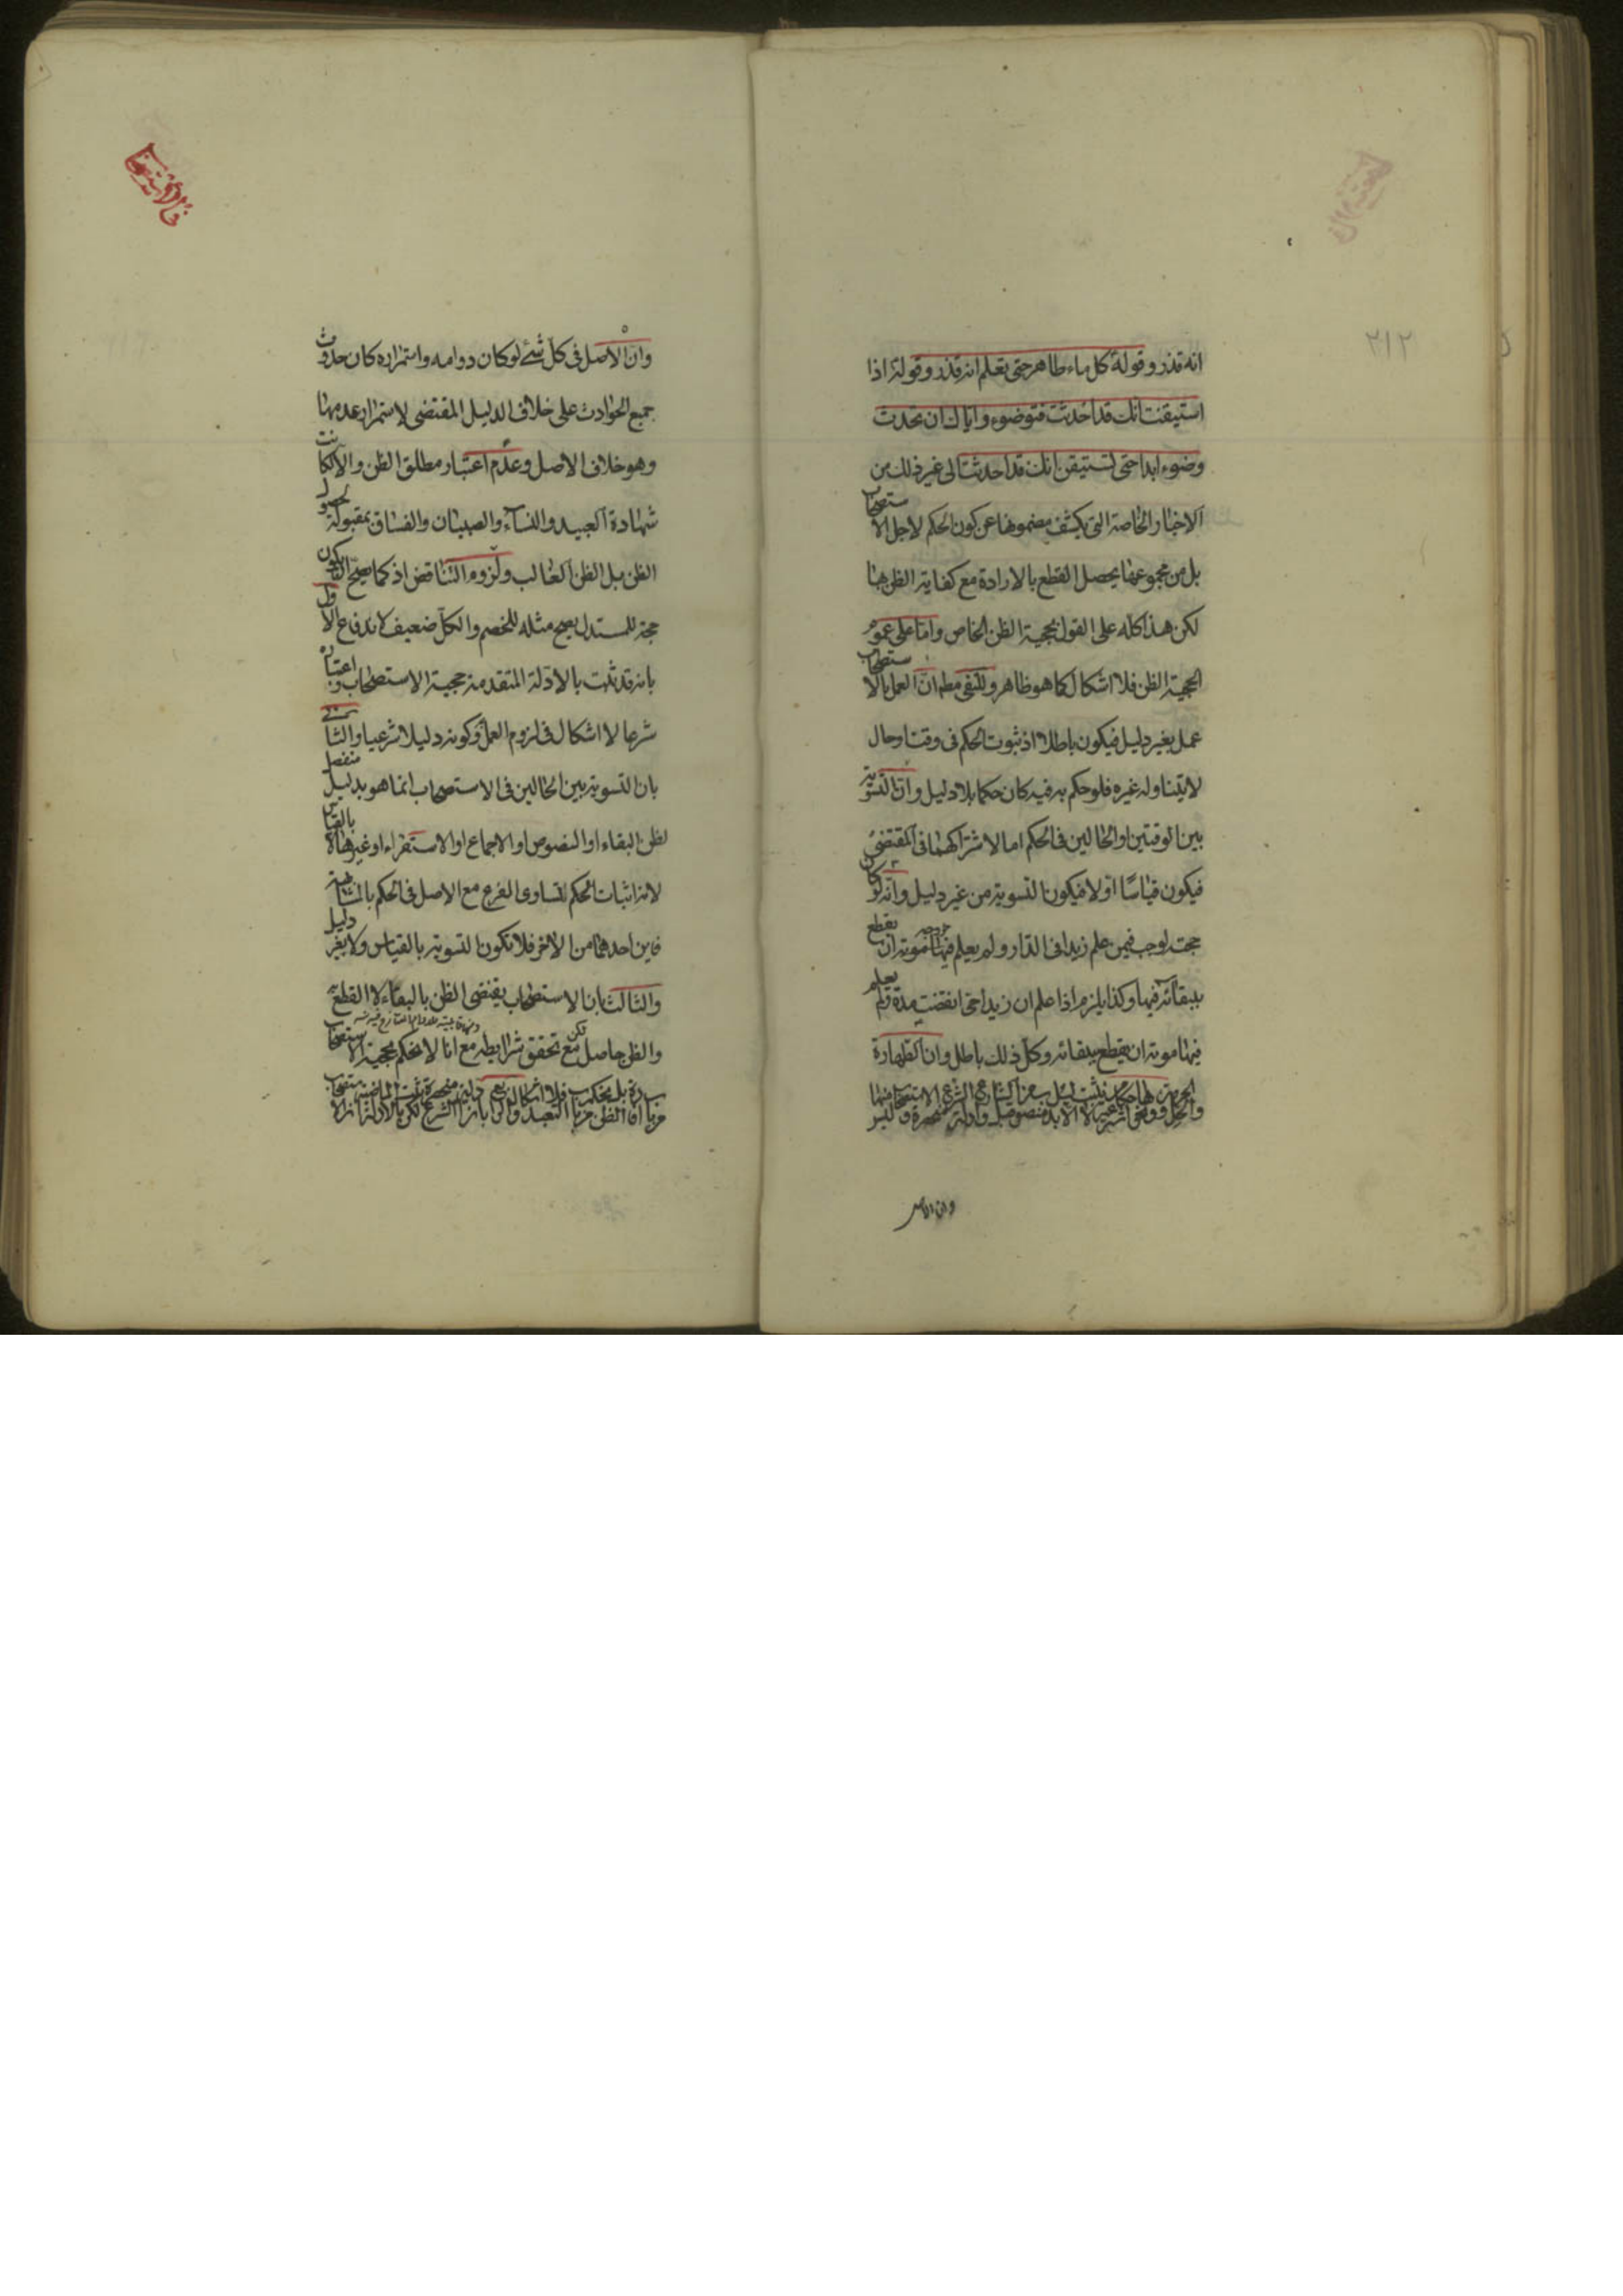 ٢١٢
انه قذر وقوله كل ماء طاهر حتى تعلم انه قذر وقوله اذا
استيقنت انك قد احدثت فتوضوء واياك ان تحدث
وضوء ابدا حتى تستيقن انك قد احدثت الى غير ذلك من
الاخبار الخاصة التى يكشف مضمونها عن كون الحكم لاجل الاستصحاب
بل من مجموعها يحصل القطع بالارادة مع كفاية الظن بها
لكن هذا كله على القول بحجية الظن الخاص واما على عموم
الحجية الظن فلا اشكال كما هو ظاهر وللنفى مطم ان العمل بالاستصحاب
عمل بغير دليل فيكون باطلا اذ ثبوت الحكم فى وقت او حال
لا يتناوله غيره فلو حكم به فيه كان حكما بلا دليل وان التسوية
بين الوقتين او الحالين فى الحكم اما لاشتراكهما فى المقتضى
فيكون قياسًا او لا فيكون التسوية من غير دليل وانه لو كان
حجة لوجب فيمن علم زيدا فى الدار ولم يعلم خروجه فيها موته ان يقطع
ببقائه فيها وكذا يلزم اذا علم ان زيدا حى انقضت مدة ولم يعلم
فيها موته ان يقطع ببقائه وكل ذلك باطل وان الطهارة
والحل والحرمة ونحوها احكام شرعية لا تثبت الا بدليل من الشارع وادلة الشرع منحصرة وليس الاستصحاب منها
وان الاصل
وان الاصل فى كل شئ لو كان دوامه واستمراره كان حدوث
جميع الحوادث على خلاف الدليل المقتضى لاستمرار عدمها
وهو خلاف الاصل وعدم اعتبار مطلق الظن والا لكانت
شهادة العبيد والنساء والصبيان والفساق مقبولة لحصول
الظن بل الظن الغالب ولزوم التناقض اذ كما يصح ان يكون
حجة للمستدل يصح مثله للخصم والكل ضعيف لاندفاع الاول
بانه قد ثبت بالادلة المتقدمة حجية الاستصحاب واعتباره
شرعا لا اشكال فى لزوم العمل وكونه دليلا شرعيا والثانى
بان التسوية بين الحالين فى الاستصحاب انما هو بدليل منفصل
لظن البقاء او النصوص او الاجماع او الاستقراء او غيرها لا بالقياس
لانه اثبات الحكم لتساوى الفرع مع الاصل فى الحكم بالمشابهة
فاين احدهما من الاخر فلا تكون التسوية بالقياس ولا بغير دليل
والثالث بان الاستصحاب يقتضى الظن بالبقاء لا القطع به
والظن حاصل لكن مع تحقق شرايطه مع انا لا نحكم بحجية الاستصحاب